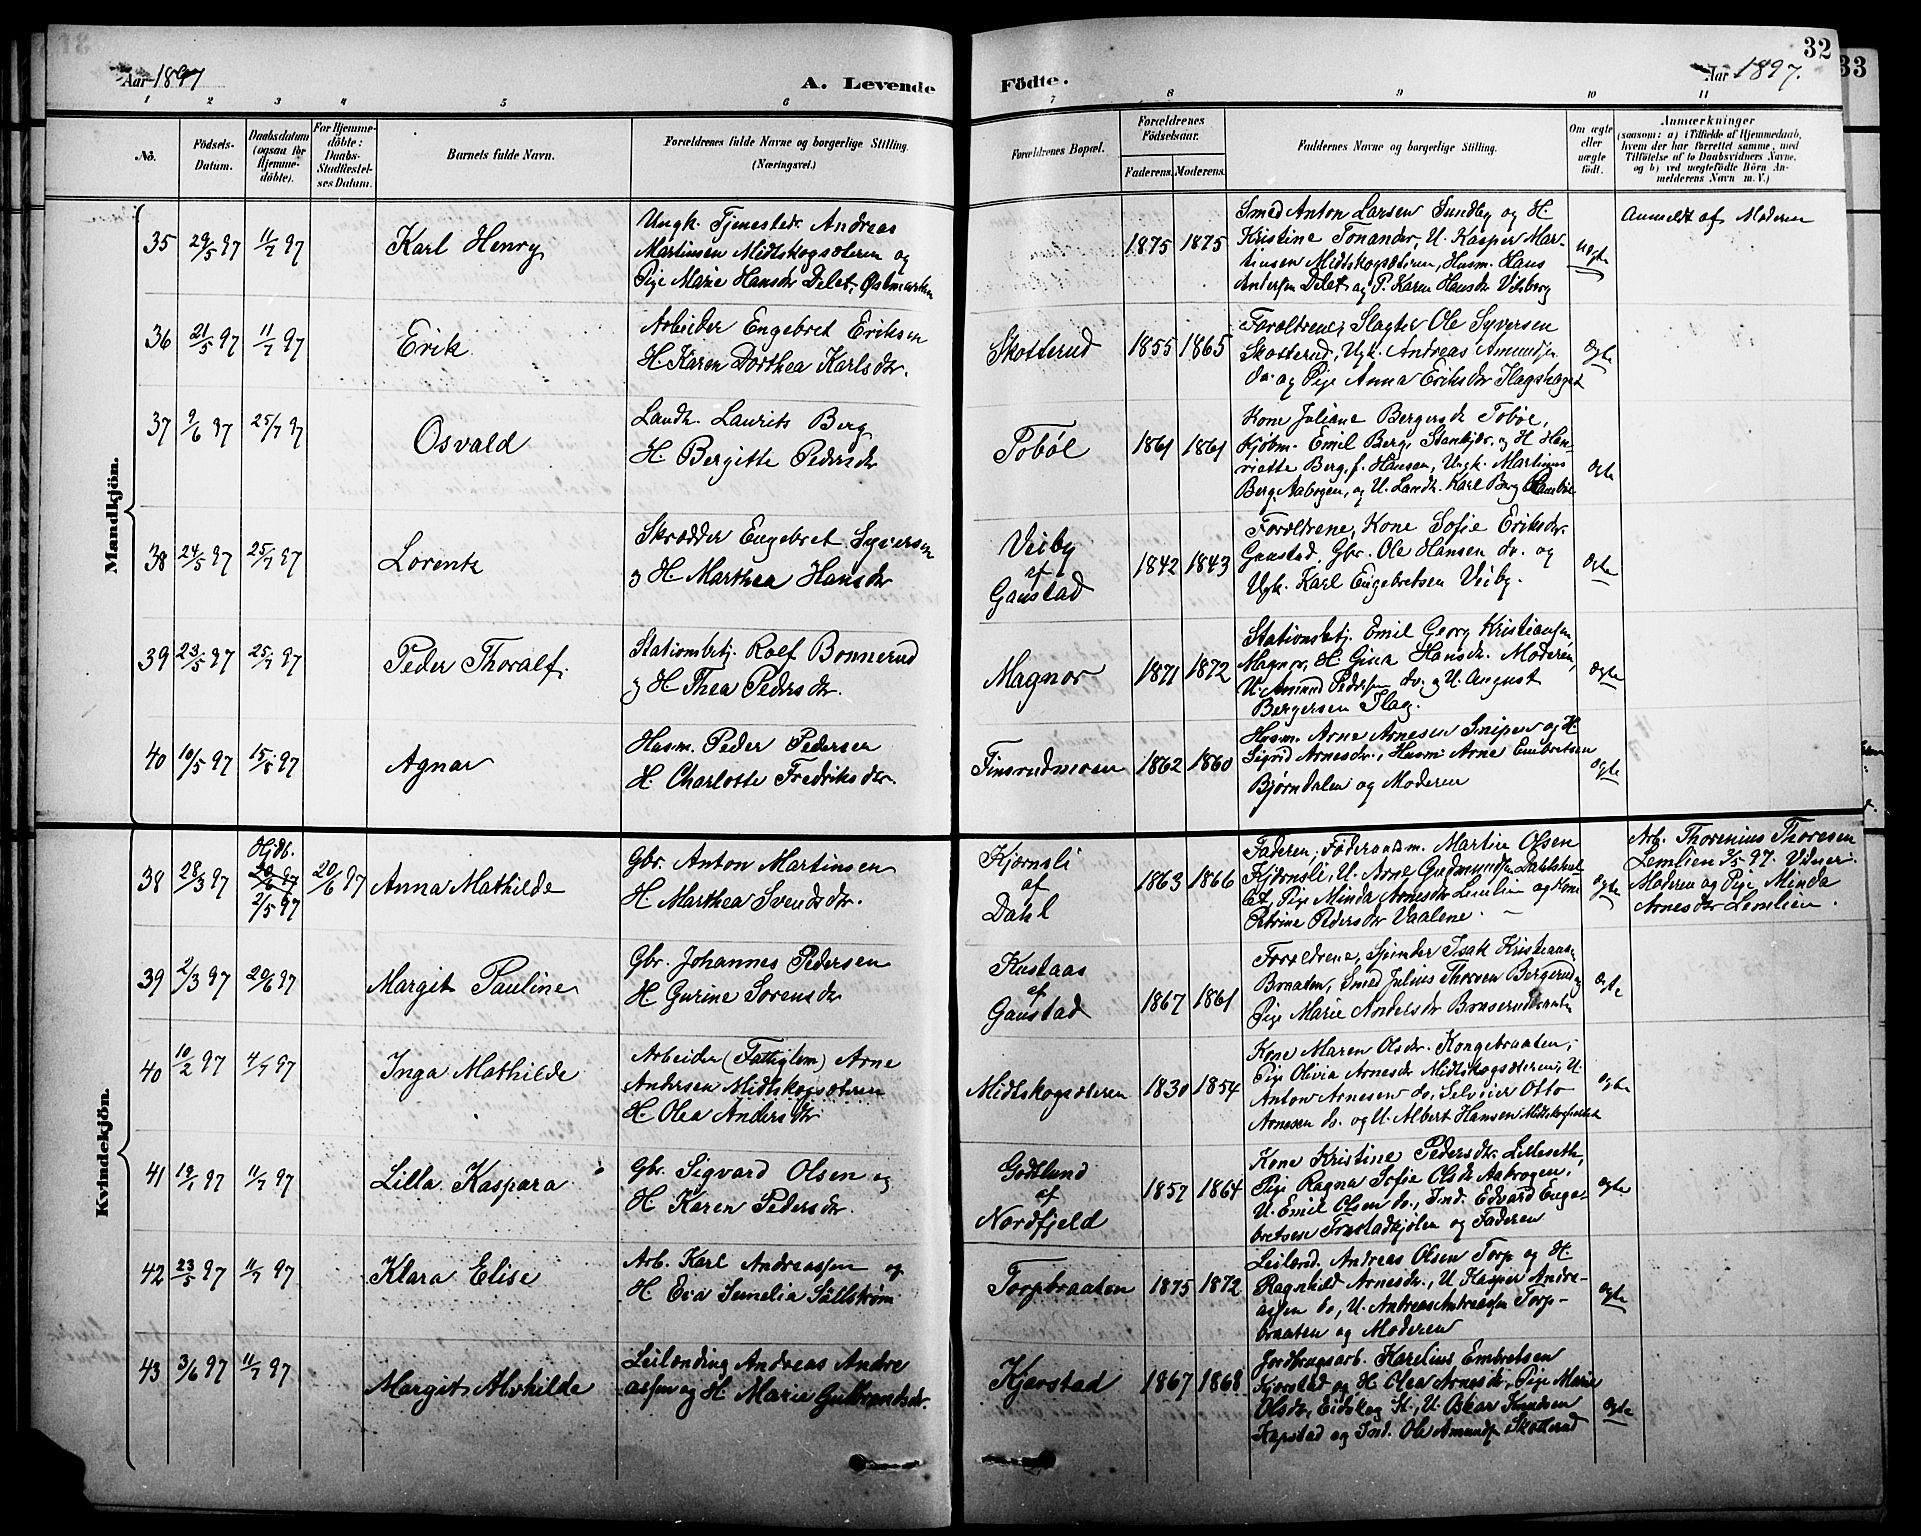 32
33
Aar 1897
A. Levende
Födte.
Aar 1897.
1 2 3 4 5 6 7 8 9 10 11
No.
Födsels-
Datum.
Daabsdatum
(ogsaa for
Hjemme-
döbte).
For Hjemme-
döbte:
Daabs-
Stadfæstel-
ses Datum.
Barnets fulde Navn.
Forældrenes fulde Navne og borgerlige Stilling.
(Næringsvei.)
Forældrenes Bopæl.
Forældrenes
Födselsaar.
Faderens. Moderens.
Faddernes Navne og borgerlige Stilling.
Om ægte
eller
uægte
födt.
Anmærkninger
(saasom: a) i Tilfælde af Hjemmedaab,
hvem der har forrettet samme, med
Tilföielse af to Daabsvidners Navne,
og b) ved uægtefödte Börn An-
melderens Navn m. V.)
Mandkjön.
35 29/5 97 11/7 97 Karl Henry
Ungk. Tjenestedr. Andreas
Martinsen Midtskogsæteren og
Pige Marie Hansdr Delet, Østmarken
1875 1875
Smed Anton Larsen Sundby og H.
Kristine Tonandr, U. Kasper Mar-
tinsen Midtskogsæteren, Husm. Hans
Andersen Delet og P. Karen Hansdr Vilberg
uægte
Anmeldt af Moderen
36 21/5 97 11/7 97 Erik
Arbeider Engebret Eriksen
H. Karen Dorthea Karlsdr.
Skotterud 1855 1865
Forældrene, Slagter Ole Syversen
Skotterud, Ugk. Andreas Amundsen
do. og Pige Anna Eriksdr Flagshaget
ægte
37 9/6 97 25/7 97 Osvald
Landh. Laurits Berg
H. Bergitte Pedersdr
Tobøl 1861 1861
Kone Juliane Bergersdr Tobøl,
Kjøbm. Emil Berg, Stenkjær, og H. Hen-
riette Berg, f. Hansen, Ungk. Martinus
Berg, Aabogen, og U. Landh. Karl Berg
ægte
38 24/5 97 25/7 97 Lorentz
Skrædder Engebret Syversen
og H. Marthea Hansdr
Veiby
af
Gaustad
1842 1843
Forældrene, Kone Sofie Eriksdr.
Gaustad, Gbr. Ole Hansen do. og
Ugk. Karl Engebretsen Veiby.
ægte
39 23/5 97 25/7 97 Peder Thoralf.
Stationsbetj. Rolf Bonnerud
og H Thea Pedersdr.
Magnor 1871 1872
Stationsbetj. Emil Georg Kristiansen,
Magnor, H. Gina Hansdr. Moderen,
U. Amund Pedersen do. og U. August
Bergersen Flag.
ægte
40 10/5 97 15/8 97 Agnar
Husm. Peder Pedersen
H. Charlotte Fredriksdr.
Finsrudmoen 1862 1860
Husm. Arne Arnesen Snipen og H
Sigrid Arnesdr., Husm. Arne Embretsen
Bjørndalen og Moderen
ægte
Kvindekjön.
38 28/3 97
Hjdb.
20/6 97
2/5 97
20/6 97 Anna Mathilde
Gbr. Anton Martinsen
H. Marthea Svendsdr.
Kjernsli
af
Dahl
1863 1866
Faderen, Føderaadsm. Martin Olsen
Kjernsli, U. Arne Gudmundsen
Pige Minda Arnesdr Lemlien og Kone
Petrine Pedersdr Vaalene.
ægte
Arb. Thorenius Thoresen
Lemlien 2/5 97. Vidner:
Moderen og Pige Minda
Arnesdr Lemlien.
39 2/3 97 20/6 97 Margit Pauline
Gbr. Johannes Pedersen
H. Gurine Sorensdr
Kustaas
af
Gaustad
1867 1861
Forældrene, Spinder Isak Kristiansen
Braaten, Smed Julius Thoresen Bergerud og
Pige Marie Andersdr
ægte
40 10/2 97 4/7 97 Inga Mathilde
Arbeider (Fattiglem) Arne
Andersen Midtskogsæteren
H. Olea Andersdr
Midtskogsæteren 1830 1854
Kone Maren Olsdr. Kongebraaten,
Pige Olivia Arnesdr Midtskogsæteren, U.
Anton Arnesen do, Selveier Otto
Arnesen do. og U. Albert Hansen Midtskogsæter
ægte
41 19/1 97 11/7 97 Lilla Kaspara
Gbr. Sigvard Olsen og
H. Karen Pedersdr.
Godtlund
af
Nordfjeld
1857 1864
Kone Kristine Pedersdr. Lilleseth,
Pige Ragna Sofie Olsdr Aabogen,
U. Emil Olsen do., Ind. Edvard Enge-
bretsen og Faderen
ægte
42 23/5 97 11/7 97 Klara Elise
Arb. Karl Andreassen og
H. Eva Semelia Sällström
Torpbraaten 1875 1872
Leilænd. Andreas Olsen Torp og H.
Ragnhild Arnesdr., U. Kasper Andre-
assen do, U. Andreas Andreassen Torp-
braaten og Moderen
ægte
43 3/6 97 11/7 97 Margit Alvhilde
Leilænding Andreas Andre
assen og H. Marie Gulbrandsdr.
Kjerstad 1867 1868
Jordbrugsarb. Karelius Embretsen
Kjerstad og H. Olea Arnesdr, Pige Marie
Olsdr, Eidskog St., U. Oskar Knudsen
og Ind. Ole Amundsen Skotterud
ægte